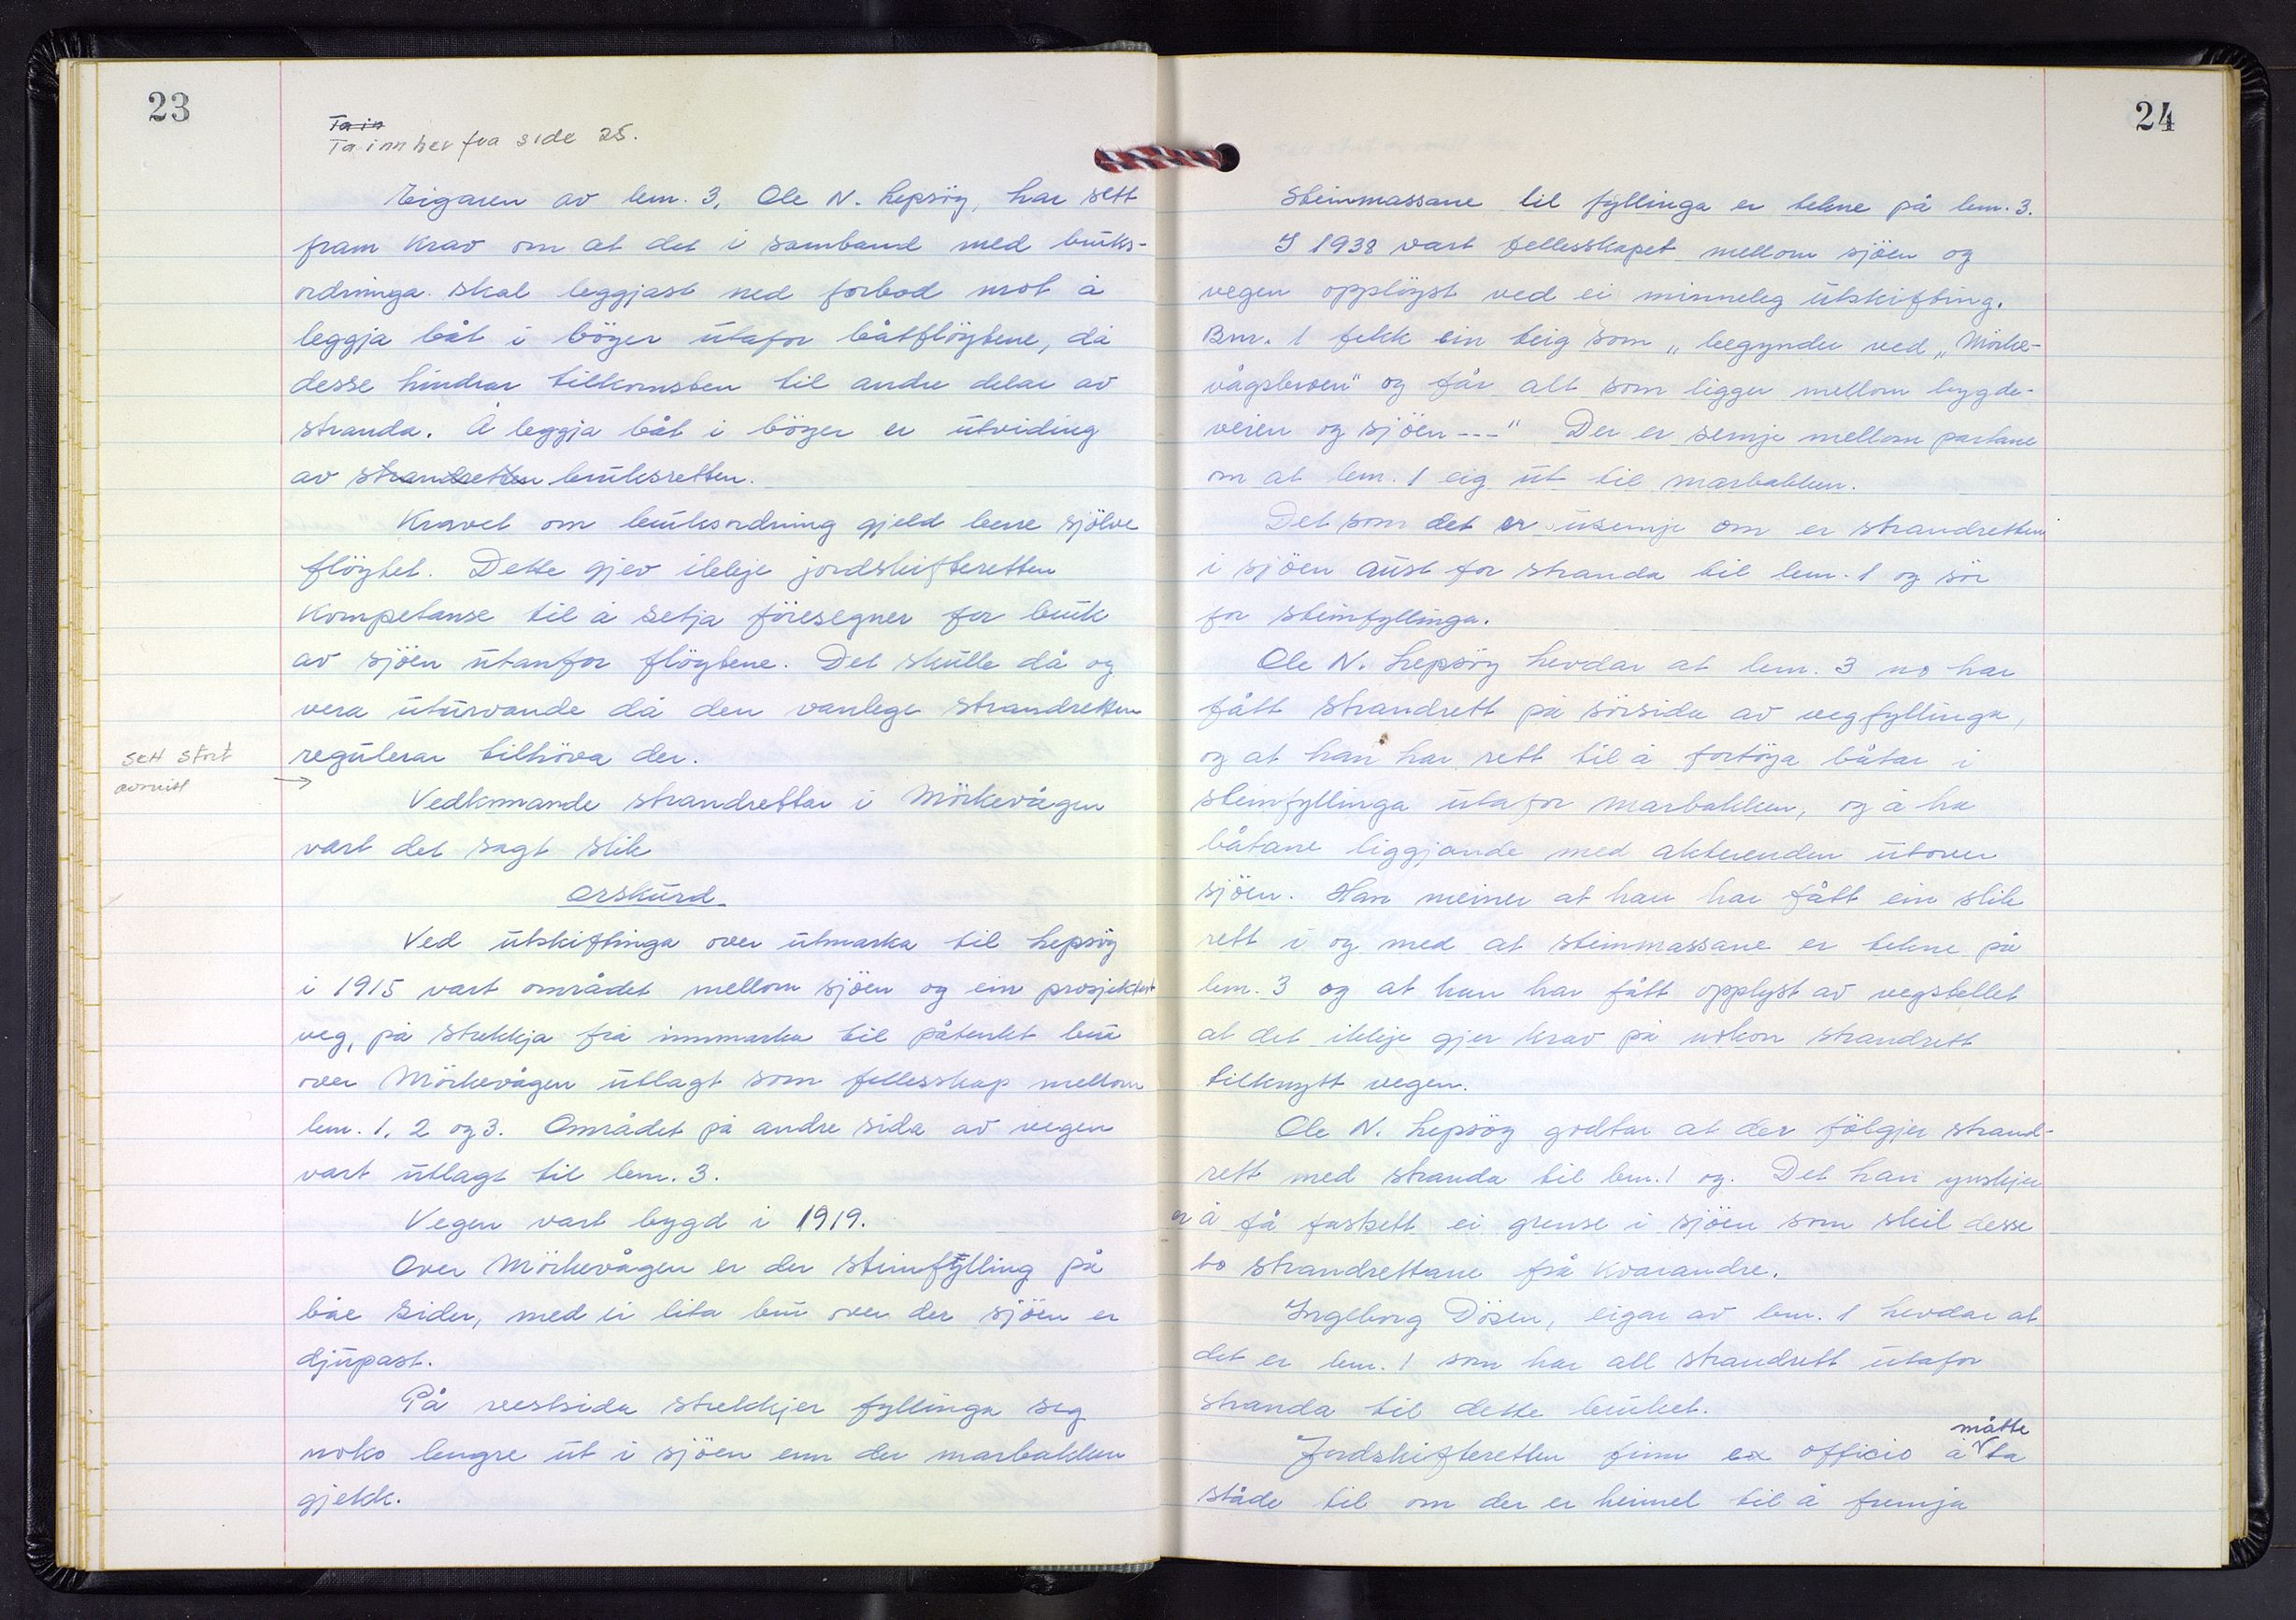 23
Ta in
Ta inn her fra side 25.
Eigaren av bnr. 3, Ole N. Lepsöy, har sett
fram krav om at det i samband med bruks-
ordninga skal leggjast ned forbod mot å
leggja båt i böyer utafor båtflöytene, då
desse hindrar tilkomsten til andre delar av
stranda. Å leggja båt i böyer er utviding
av strandretten bruksretten.
Kravet om bruksordning gjeld berre sjölve
flöytet. Dette gjev ikkje jordskifteretten
kompetanse til å setja föresegner for bruk
av sjöen utanfor flöytene. Det skulle då og
vera uturvande då den vanlege strandretten
regulerar tilhöva der.
sett stort
avsnitt →
Vedkomande strandrettar i Mörkevågen
vart det sagt slik
Orskurd
Ved utskiftinga over utmarka til Lepsöy
i 1915 vart området mellom sjöen og ein prosjektert
veg, på strekkja frå innmarka til påtenkt bru
over Mörkevågen utlagt som fellesskap mellom
bnr. 1, 2 og 3. Området på andre sida av vegen
vart utlagt til bnr. 3.
Vegen vart bygd i 1919.
Over Mörkevågen er der steinfylling på
båe sider, med ei lita bru over der sjöen er
djupast.
På vestsida strekkjer fyllinga seg
noko lengre ut i sjöen enn der marbakken
gjekk.
24
Steinmassane til fyllinga er tekne på bnr. 3.
I 1938 vart fellesskapet mellom sjöen og
vegen opplöyst ved ei minneleg utskifting.
Bnr. 1 fekk ein teig som „begynder ved „Mörke-
vågsbroen" og får alt som ligger mellom bygde-
veien og sjöen ---" Der er semje mellom partane
om at bnr. 1 eig ut til marbakken.
Det som det er usemje om er strandretten
i sjöen aust for stranda til bnr. 1 og sör
for steinfyllinga.
Ole N. Lepsöy hevdar at bnr. 3 no har
fått strandrett på sörsida av vegfyllinga,
og at han har rett til å fortöya båtar i
steinfyllinga utafor marbakken, og å ha
båtane liggjande med akterenden utover
sjöen. Han meiner at han har fått ein slik
rett i og med at steinmassane er tekne på
bnr. 3 og at han har fått opplyst av vegstellet
at det ikkje gjer krav på nokon strandrett
tilknytt vegen.
Ole N. Lepsöy godtar at der fölgjer strand-
rett med stranda til bnr. 1 og. Det han ynskjer
er å få fastsett ei grense i sjöen som skil desse
to strandrettane frå kvarandre.
Ingeborg Dösen, eigar av bnr. 1 hevdar at
det er bnr. 1 som har all strandrett utafor
stranda til dette bruket.
måtte
Jordskifteretten finn ex officio å ta
ståde til om der er heimel til å fremja